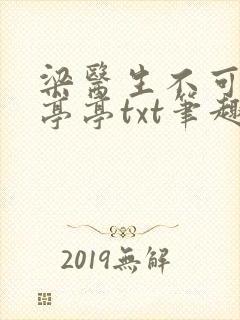 梁醫生不可
亭亭txt筆趣
2019無解